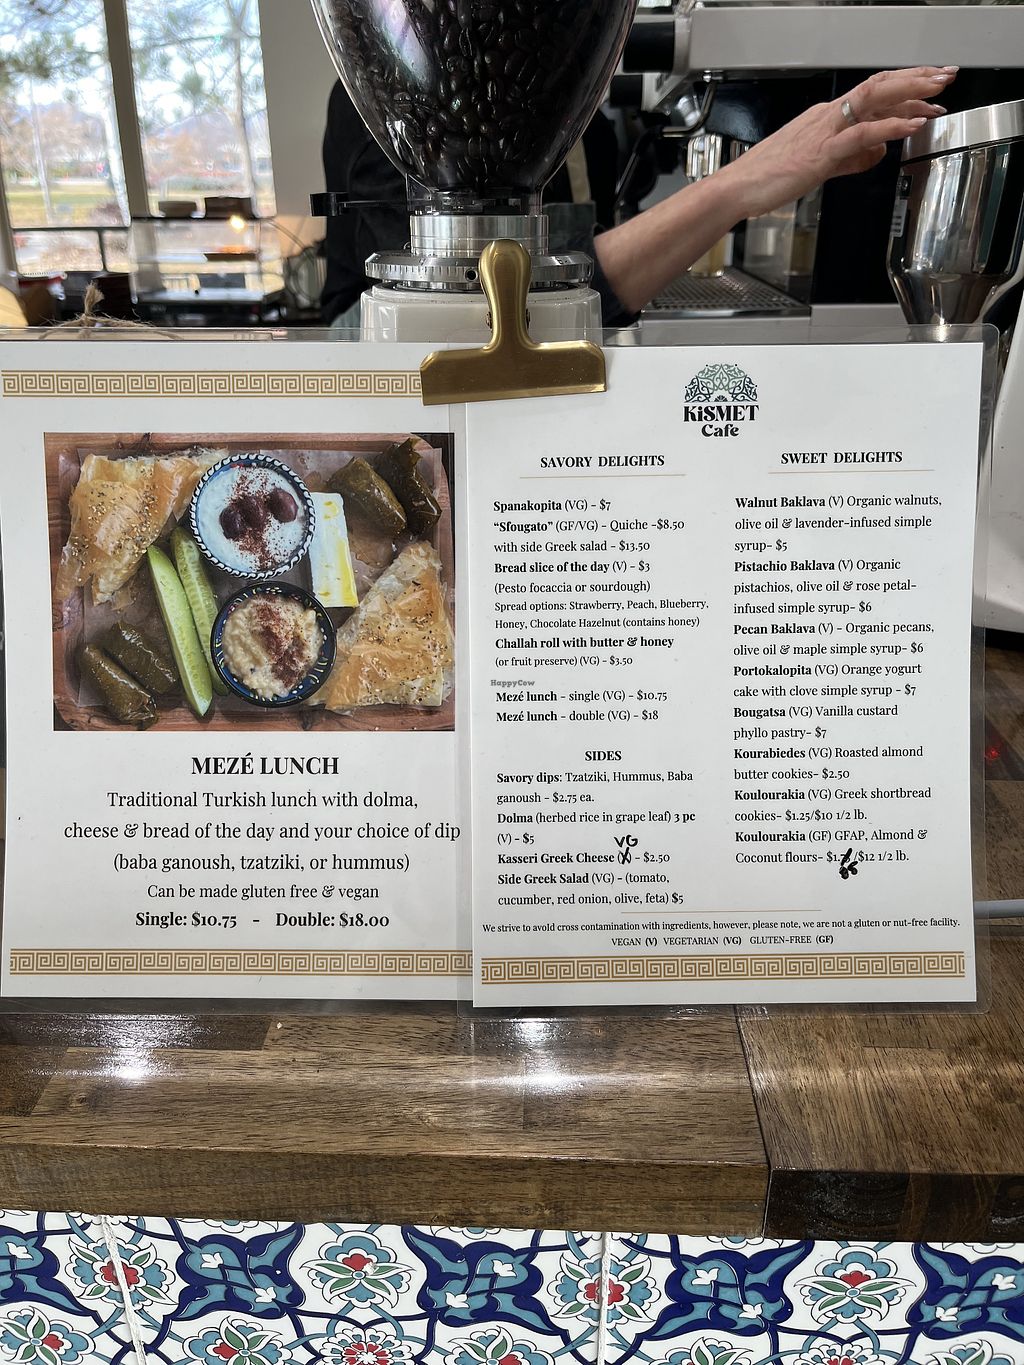 MEZÉ LUNCH
Traditional Turkish lunch with dolma,
cheese & bread of the day and your choice of dip
(baba ganoush, tzatziki, or hummus)
Can be made gluten free & vegan
Single: $10.75 - Double: $18.00
KiSMET
Cafe
SAVORY DELIGHTS
Spanakopita (VG) - $7
“Sfougato” (GF/VG) - Quiche -$8.50
with side Greek salad - $13.50
Bread slice of the day (V) - $3
(Pesto focaccia or sourdough)
Spread options: Strawberry, Peach, Blueberry,
Honey, Chocolate Hazelnut (contains honey)
Challah roll with butter & honey
(or fruit preserve) (VG) - $3.50
HappyCow
Mezé lunch - single (VG) - $10.75
Mezé lunch - double (VG) - $18
SIDES
Savory dips: Tzatziki, Hummus, Baba
ganoush - $2.75 ea.
Dolma (herbed rice in grape leaf) 3 pc
(V) - $5
VG
Kasseri Greek Cheese (V) - $2.50
Side Greek Salad (VG) - (tomato,
cucumber, red onion, olive, feta) $5
SWEET DELIGHTS
Walnut Baklava (V) Organic walnuts,
olive oil & lavender-infused simple
syrup- $5
Pistachio Baklava (V) Organic
pistachios, olive oil & rose petal-
infused simple syrup- $6
Pecan Baklava (V) - Organic pecans,
olive oil & maple simple syrup- $6
Portokalopita (VG) Orange yogurt
cake with clove simple syrup - $7
Bougatsa (VG) Vanilla custard
phyllo pastry- $7
Kourabiedes (VG) Roasted almond
butter cookies- $2.50
Koulourakia (VG) Greek shortbread
cookies- $1.25/$10 1/2 lb.
Koulourakia (GF) GFAP, Almond &
Coconut flours- /$12 1/2 lb.
We strive to avoid cross contamination with ingredients, however, please note, we are not a gluten or nut-free facility.
VEGAN (V) VEGETARIAN (VG) GLUTEN-FREE (GF)